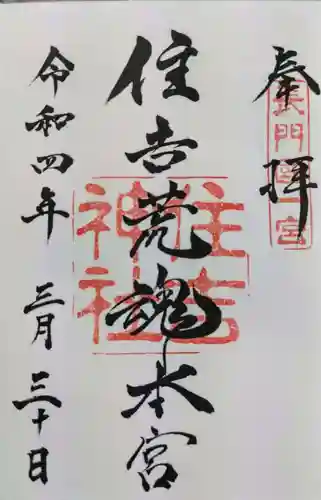 奉拝
長門一宮
住吉荒魂本宮
住吉神社
令和四年 三月 三十日